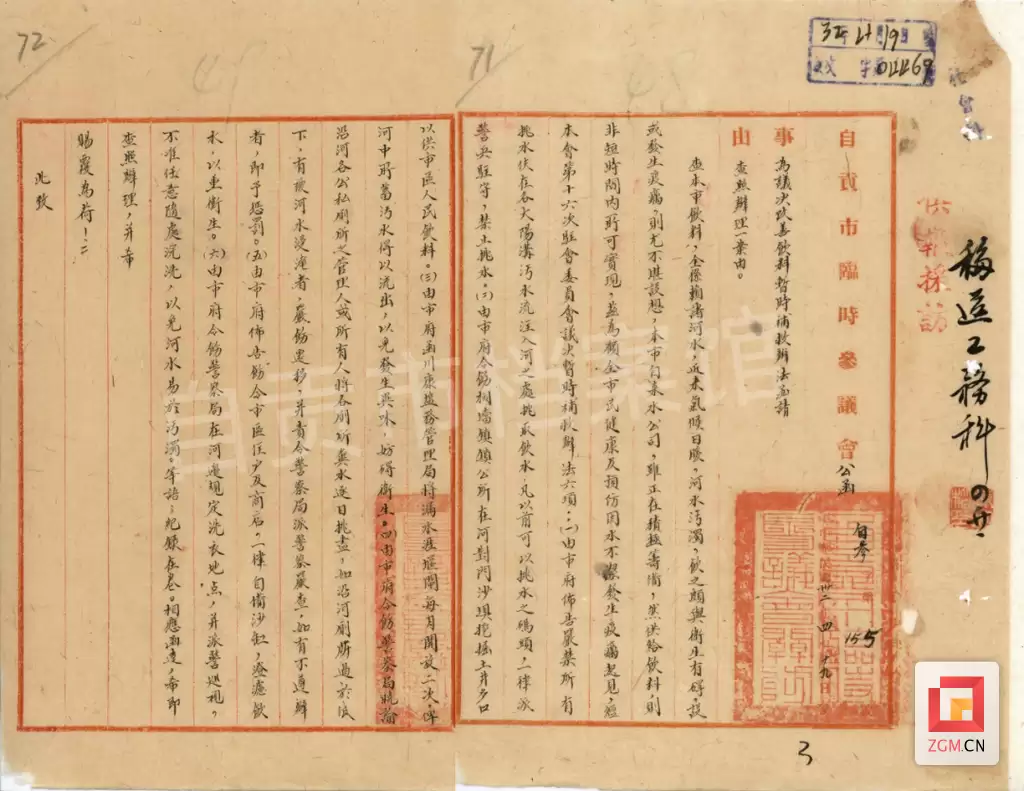 72
71
32年4月19日
收文 字第 04469
供採訪
移送工務科
自貢市臨時參議會公函
自參
155
卅二 四 十九
事由
為議決改善飲料暫時補救辦法函請
查照辦理一案由。
查本市飲料,全係擔諸河水,近來氣候日暖,河水污濁,飲之頗與衛生有碍,設
或發生疫癘,則尤不堪設想,本市自來水公司,雖正在積極籌備,然供給飲料,則
非短時間內所可實現,茲為顧全市民健康及預防因水不潔發生疫癘起見,經
本會第十六次駐會委員會議決暫時補救辦法六項:(一)由市府佈告嚴禁所有
挑水伕在各大陽溝污水流注入河之處挑取飲水,凡以前可以挑水之碼頭,一律派
警兵駐守,禁止挑水。(二)由市府令飭桐壋鎮鎮公所在河對門沙壩挖掘土井多口
以供市區人民飲料。(三)由市府函川康鹽務管理局將漏水巖堰閘每月開放二次,俾
河中所蓄污水得以流出,以免發生異味,妨碍衛生。(四)由市府令飭警察局曉諭
沿河各公私廁所之管理人或所有人將各廁所糞水逐日挑盡,如沿河廁所過於低
下,有被河水浸淹者,嚴飭遷移,并責令警察局派警察嚴查,如有不遵辦
者,即予懲罰。(五)由市府佈告飭令市區住戶及商店,一律自備沙缸,濾飲
水,以重衛生。(六)由市府令飭警察局在河邊規定洗衣地點,并派警巡視,
不准任意隨處浣洗,以免河水易於污濁。等語;紀錄在卷。相應函達,希即
查照辦理,并希
賜覆為荷!
此致
3
自贡市档案馆
ZGM.CN